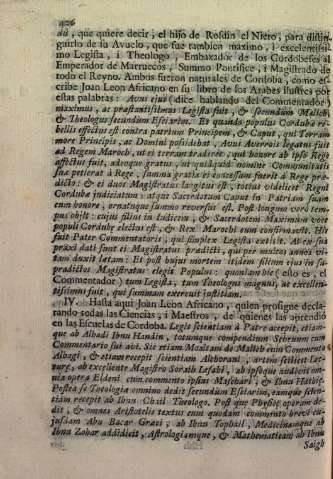 dii, que quiere decir, el hijo de Rosdin el Nieto, para distin-
guirlo de su Avuelo, que fue tambien maximo, i excelentissi-
mo Legista, i Theologo, Embaxador de los Cordobeses al
Emperador de Marruecos, Summo Pontifice, i Magistrado de
todo el Reyno. Ambos fueron naturales de Cordoba, como es-
cribe Joan Leon Africano en su libro de los Arabes ilustres por
estas palabras: Avus ejus (dice hablando del Commentador)
maximus, ac præstantissimus Legista fuit, & secundum Malich,
& Theologus secundum Esciarim. Et quando populus Cordubæ re-
bellis effectus est contra patrium Principem, & Caput, qui Terram
more Principis, ac Domini possidebat, Avus Averrois legatus fuit
ad Regem Maroch, ut ei terram traderet, qui honore ab ipso Rege
affectus fuit, adeoque gratus, ut quidquid nomine Communitatis
suæ petierat à Rege, summa gratia ei concessum fuerit à Rege præ-
dicto: & ei duos Magistratus largitus est, totius videlicet Regni
Cordubæ judicatum: atque Sacerdotum Caput in Patriam suam
cum honore, ornatoque summo reversus est. Post longum verò tem-
pus obiit: cujus filius in Judicem, & Sacerdotem Maximum voce
populi Cordubæ electus est, & Rex Marochi eum confirmavit. Hic
fuit Pater Commentatoris, qui simplex Legista extitit. Averrois
prædicti dati sunt ei Magistratus prædicti, qui per multos annos vi-
tam duxit lætam: Et post hujus mortem etiam filium ejus in su-
pradictos Magistratus elegit Populus: quoniam hic (esto es, el
Commentador) tum Legista, tum Theologus magnus, ac excellen-
tissimus fuit, qui summam exercuit justitiam.
IV. Hasta aqui Joan Leon Africano, quien prosigue decla-
rando todas las Ciencias, i Maestros, de quienes las aprendiò
en las Escuelas de Cordoba. Legis scientiam à Patre accepit, etiam-
que ab Alhadi Ibnu Handin, totumque compendium Sebreum cum
Commentario sui
Alhagi, & etiam recepit scientiam Akhorani, artem scilicet Lec-
turæ, ab excellente Magistro Sorath Lesahl, ab ipsoque audivit om-
nia opera Eldeni cum commento ipsius Maschari, & Ibnu Hattib.
Postea se Totologiæ omnino dedit secundum Esciarim, eamque scien-
tiam recepit ab Ibnu Chail Theologo. Post quæ Physicæ operam de-
dit, & omnes Aristotelis textus cum quodam commento brevi cu-
jusdam Abu Bacar Græci, ab Ibnu Tophail, Medicinamque ab
Ibnu Zohar addidicit, Astrologiamque, & Mathematicam ab Ibnu
Saigh